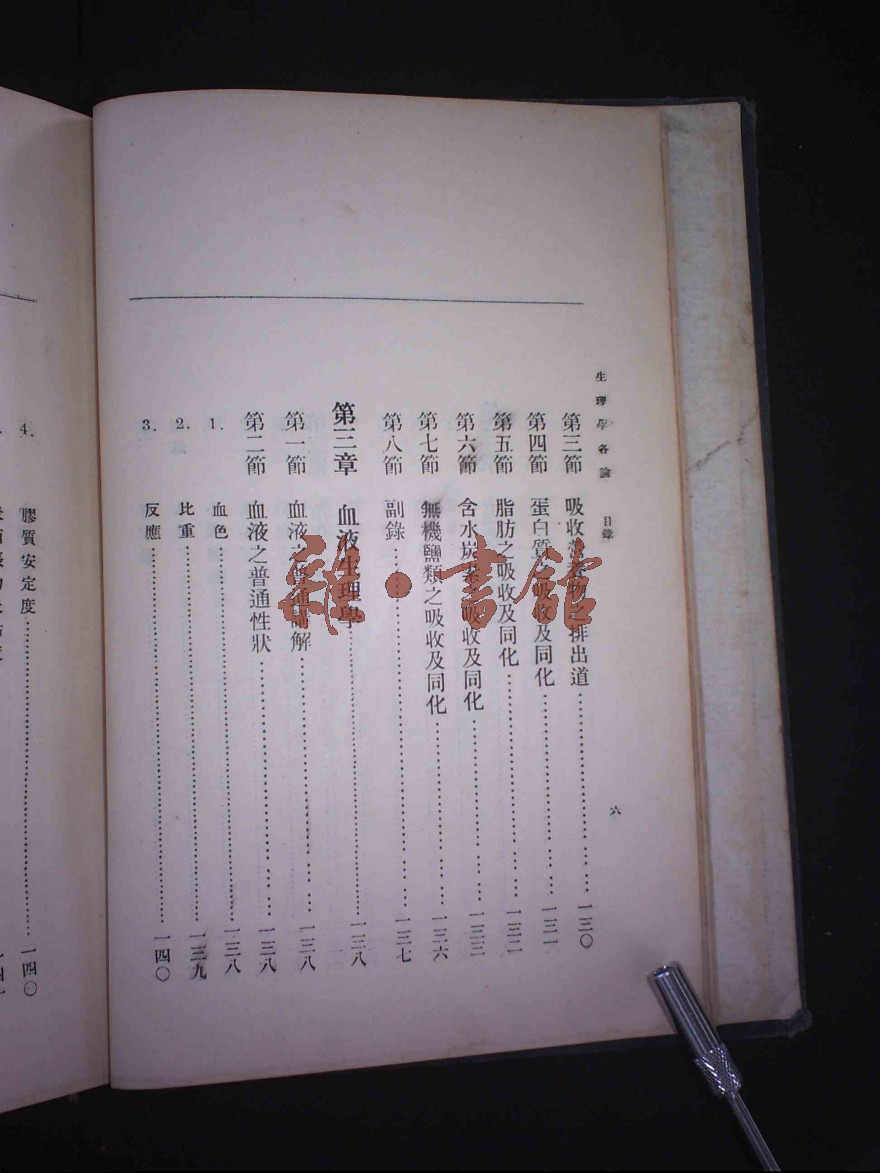 生理學各論 目錄 六
第三節 吸收營養物之排出道 一三〇
第四節 蛋白質之吸收及同化 一三一
第五節 脂肪之吸收及同化 一三二
第六節 含水炭素之吸收及同化 一三三
第七節 無機鹽類之吸收及同化 一三六
第八節 副錄 一三七
第三章 血液生理學 一三八
第一節 血液之普通講解 一三八
第二節 血液之普通性狀 一三八
1. 血色 一三八
2. 比重 一三九
3. 反應 一四〇
4. 膠質安定度 一四〇
雜·書館